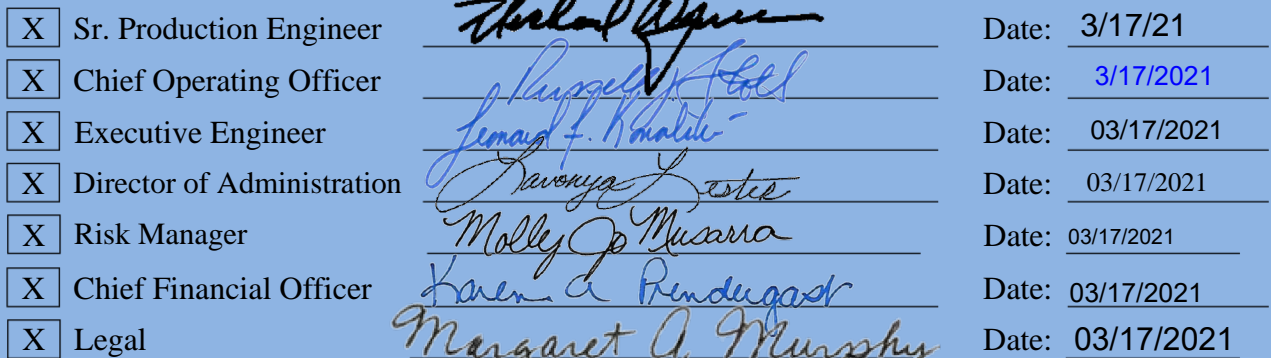 X Sr. Production Engineer Date: 3/17/21
X Chief Operating Officer Date: 3/17/2021
X Executive Engineer Leonard F. Date: 03/17/2021
X Director of Administration Lavonya Lester Date: 03/17/2021
X Risk Manager Molly Jo Musarra Date: 03/17/2021
X Chief Financial Officer Karen A Prendergast Date: 03/17/2021
X Legal Margaret A Murphy Date: 03/17/2021